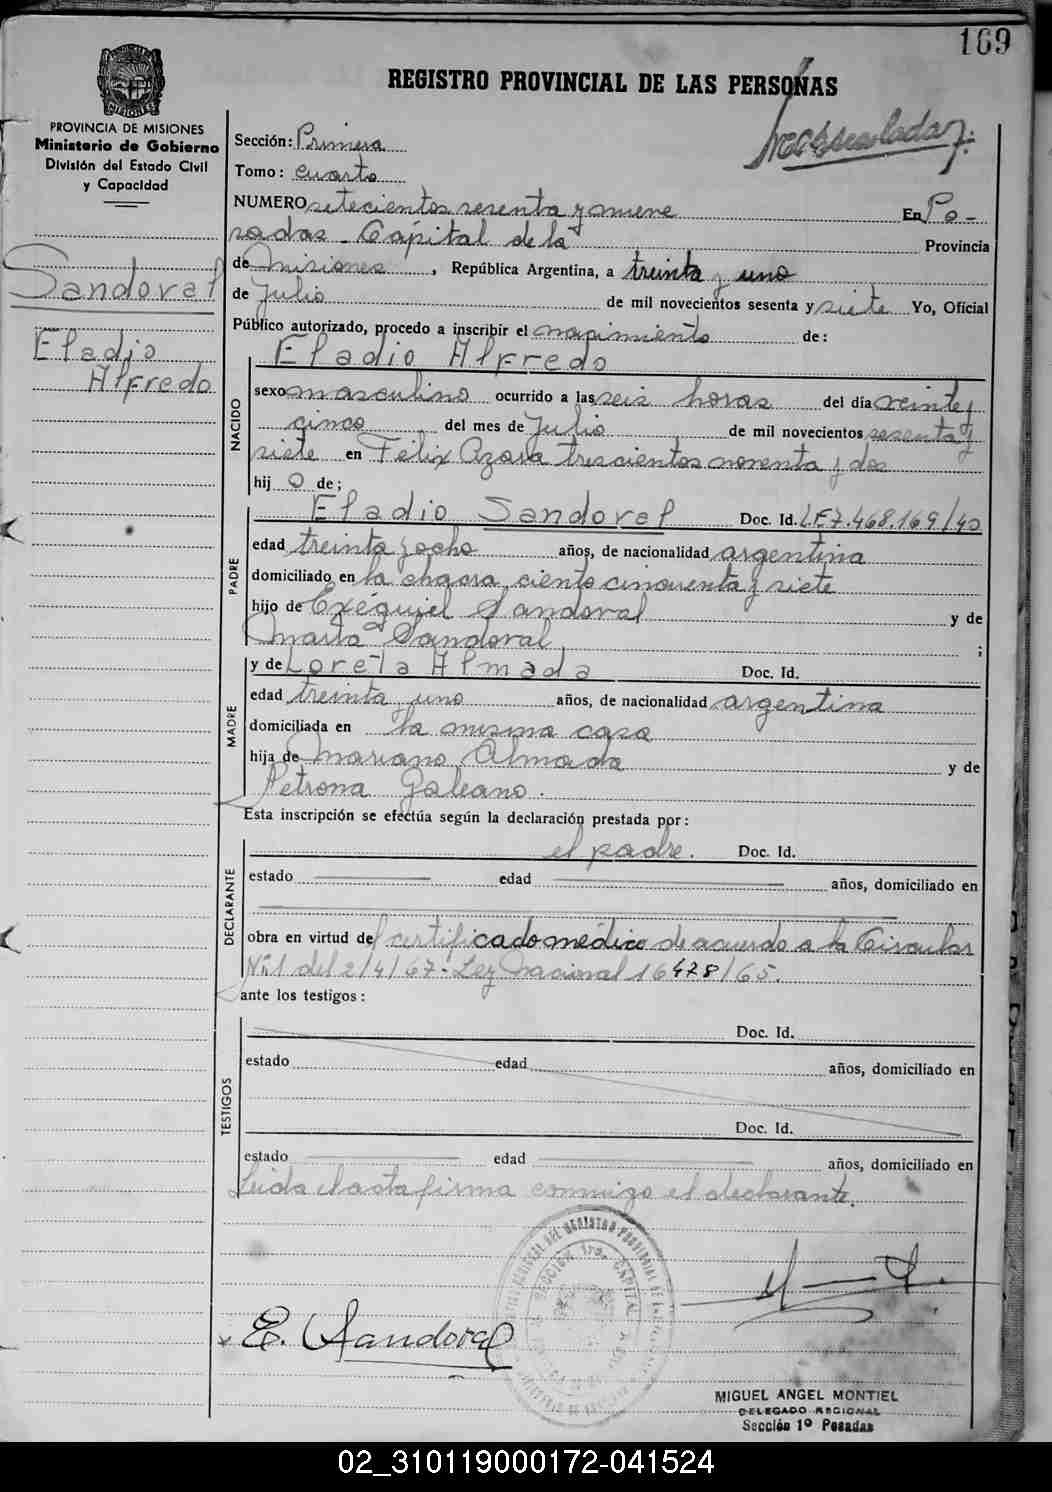 169
REGISTRO PROVINCIAL DE LAS PERSONAS
PROVINCIA DE MISIONES
Ministerio de Gobierno
División del Estado Civil
y Capacidad
Sandoval
Eladio
Alfredo
Sección: Primera
Tomo: cuarto
NUMERO setecientos sesenta y nueve En Po-
sadas Capital de la Provincia
de Misiones, República Argentina, a treinta y uno
de Julio de mil novecientos sesenta y siete Yo, Oficial
Público autorizado, procedo a inscribir el nacimiento de:
Eladio Alfredo
NACIDO
sexo masculino ocurrido a las seis horas del día veinte y
cinco del mes de Julio de mil novecientos sesenta y
siete en Félix Azara trescientos noventa y dos
hij o de;
PADRE
Eladio Sandoval Doc. Id. LE 7.468.169/40
edad treinta y ocho años, de nacionalidad argentina
domiciliado en la chacra ciento cincuenta y siete
hijo de Exéquiel Sandoval y de
María Sandoval ;
MADRE
y de Loreta Almada Doc. Id.
edad treinta y uno años, de nacionalidad argentina
domiciliada en la misma casa
hija de Mariano Almada y de
Petrona Galeano.
Esta inscripción se efectúa según la declaración prestada por:
DECLARANTE
el padre. Doc. Id.
estado edad años, domiciliado en
obra en virtud del certificado médico de acuerdo a la Circular
Nº1 del 2/4/67 - Ley Nacional 16478/65.
ante los testigos:
TESTIGOS
Doc. Id.
estado edad años, domiciliado en
Doc. Id.
estado edad años, domiciliado en
Leida el acta firma conmigo el declarante.
SECCION 1ra. CAPITAL
E. Sandoval
MIGUEL ANGEL MONTIEL
DELEGADO REGIONAL
Sección 1º Posadas
02_310119000172-041524